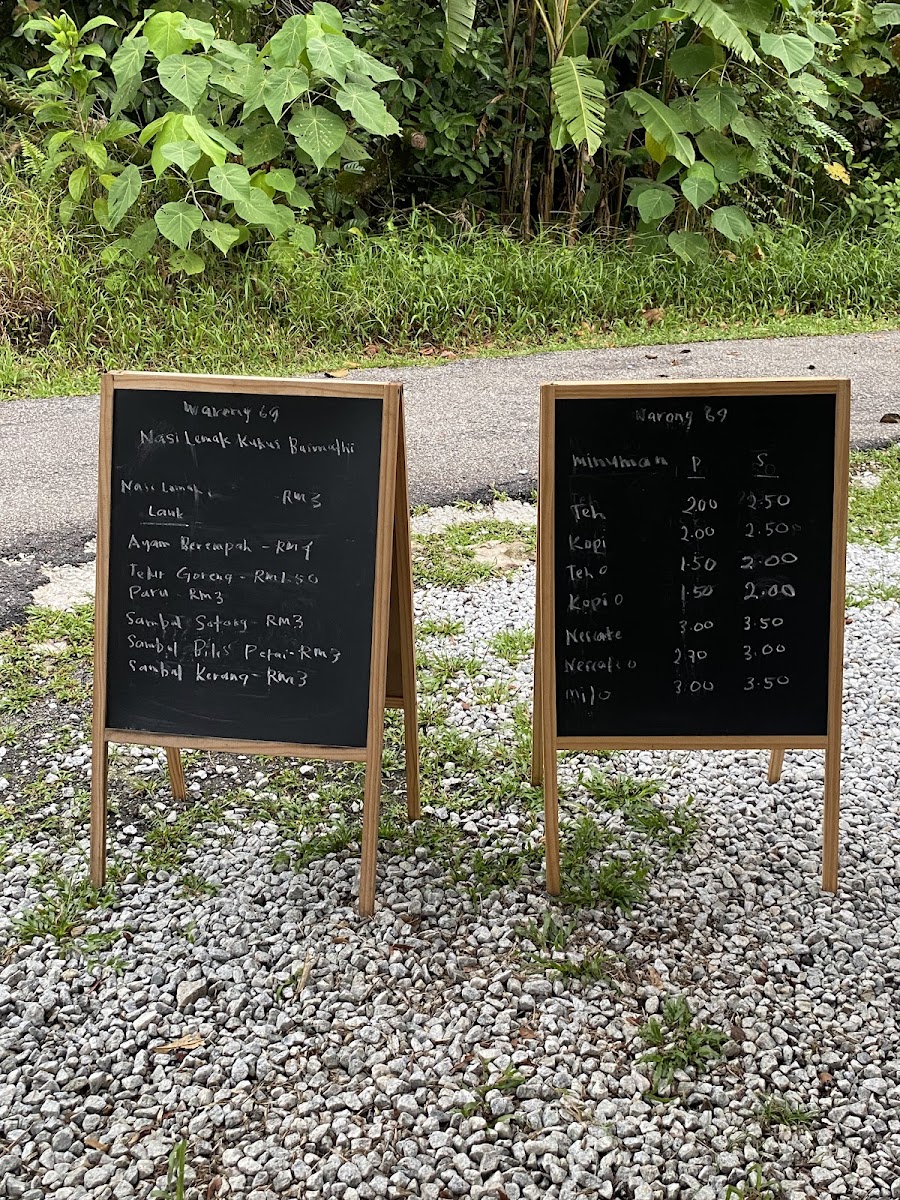 Warong 69
Nasi Lemak Kukus
Nasi Lemak - RM3
Lauk
Ayam Berempah - RM
Telur Goreng - RM1.50
Paru - RM3
Sambal Sotong - RM3
Sambal Bilis Petai - RM3
Sambal Kerang - RM3
Warong 69
Minuman P S
Teh 2.00 2.50
Kopi 2.00 2.50
Teh O 1.50 2.00
Kopi O 1.50 2.00
Nescafe 3.00 3.50
Nescafe O 2.70 3.00
Milo 3.00 3.50